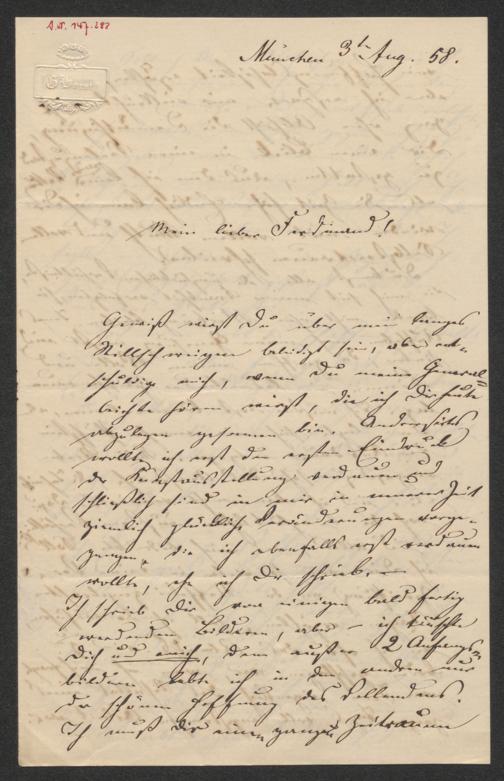 A.N. 147.282
München 3t Aug. 58.
Mein lieber Ferdinand!
Gewiß wirst Du über mein langes
Stillschweigen beleidigt sein, aber ent-
schuldige mich, wenn Du meine General-
beichte hören wirst, die ich Dir heute
abzulegen gesonnen bin. Anderseits
wollte ich erst den ersten Eindruck
der Kunstausstellung verdauen und
schließlich sind in mir in neuerer Zeit
ziemlich glückliche Veränderungen vorge-
gangen, die ich ebenfalls erst verdauen
wollte, ehe ich Dir schrieb. –
Ich schrieb Dir von einigen bald fertig
werdenden Bildern, aber – ich täuschte
Dich und mich, denn außer 2 Anfangs-
bildern lebt ich in den andern nur
der schönen Hoffnung des Vollendens.
Ich muß Dir einen ganzen Zeitraum